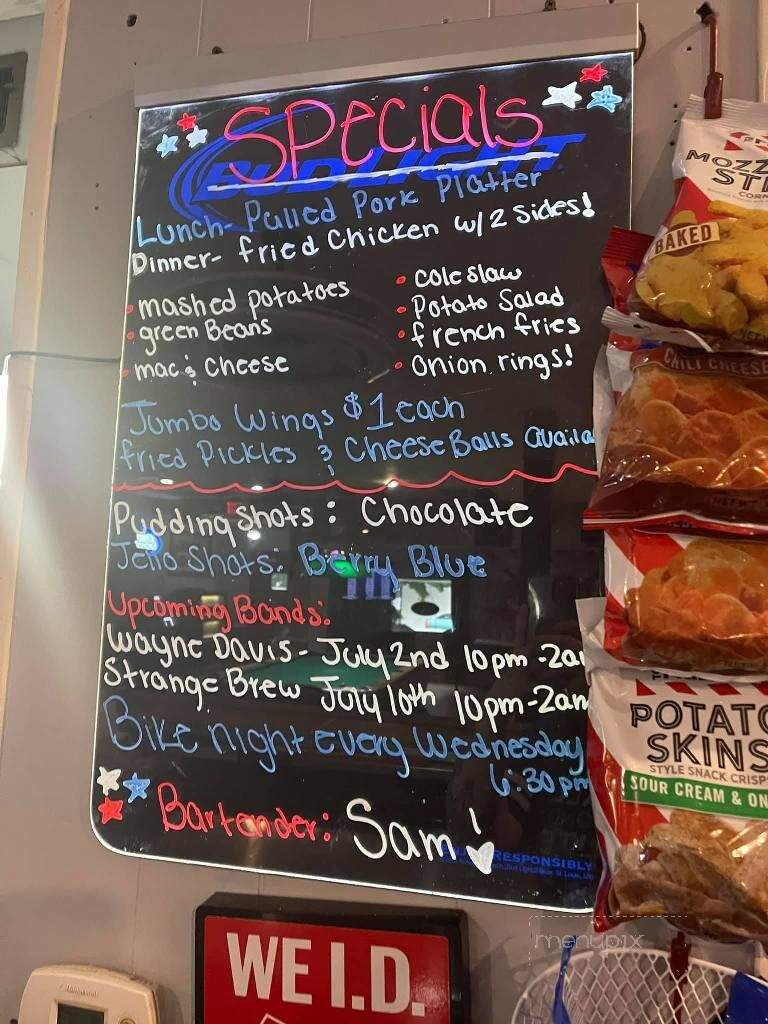 Specials
BUD LIGHT
Lunch- Pulled Pork Platter
Dinner- fried Chicken w/2 sides!
• mashed potatoes
• green Beans
• mac & cheese
• coleslaw
• Potato Salad
• french fries
• Onion rings!
Jumbo Wings $1 each
fried Pickles & Cheese Balls Availa
Pudding Shots: Chocolate
Jello Shots: Berry Blue
Upcoming Bands:
Wayne Davis- July 2nd 10pm-2a
Strange Brew July 16th 10pm-2am
Bike night every Wednesday
6:30pm
Bartender: Sam!
RESPONSIBLY
WE I.D.
MOZZ
STI
CORN
BAKED
CHILI CHEESE
POTATO
SKINS
STYLE SNACK CRISP
SOUR CREAM & ON
menupix